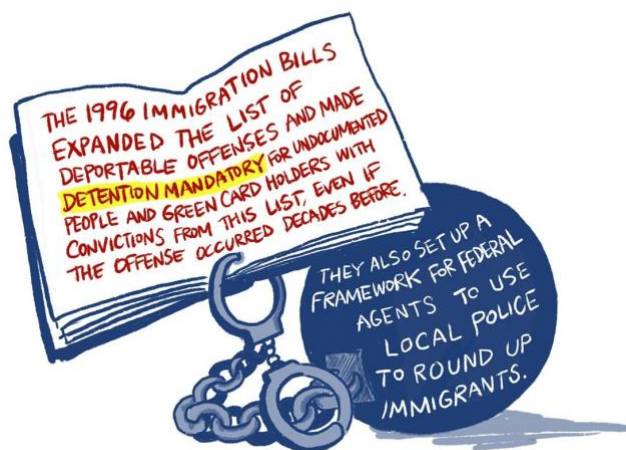 THE 1996 IMMIGRATION BILLS
EXPANDED THE LIST OF
DEPORTABLE OFFENSES AND MADE
DETENTION MANDATORY FOR UNDOCUMENTED
PEOPLE AND GREEN CARD HOLDERS WITH
CONVICTIONS FROM THIS LIST, EVEN IF
THE OFFENSE OCCURRED DECADES BEFORE.
THEY ALSO SET UP A
FRAMEWORK FOR FEDERAL
AGENTS TO USE
LOCAL POLICE
TO ROUND UP
IMMIGRANTS.